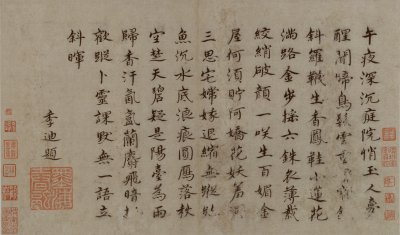 午夜深沉庭院悄玉人夢
醒聞啼鳥鬢雲
斜羅襪生香鳳鞋小蓮花
滿路金步搖六銖衣薄裁
絞綃破顏一咲生百媚金
屋何須貯阿嬌花妖着
三思宅
魚沉水底浪痕圓雁落秋
空楚天碧疑是陽臺為雨
歸香汗氤氳蘭麝飛暗
卜靈課默無一語立
斜暉
李迪題